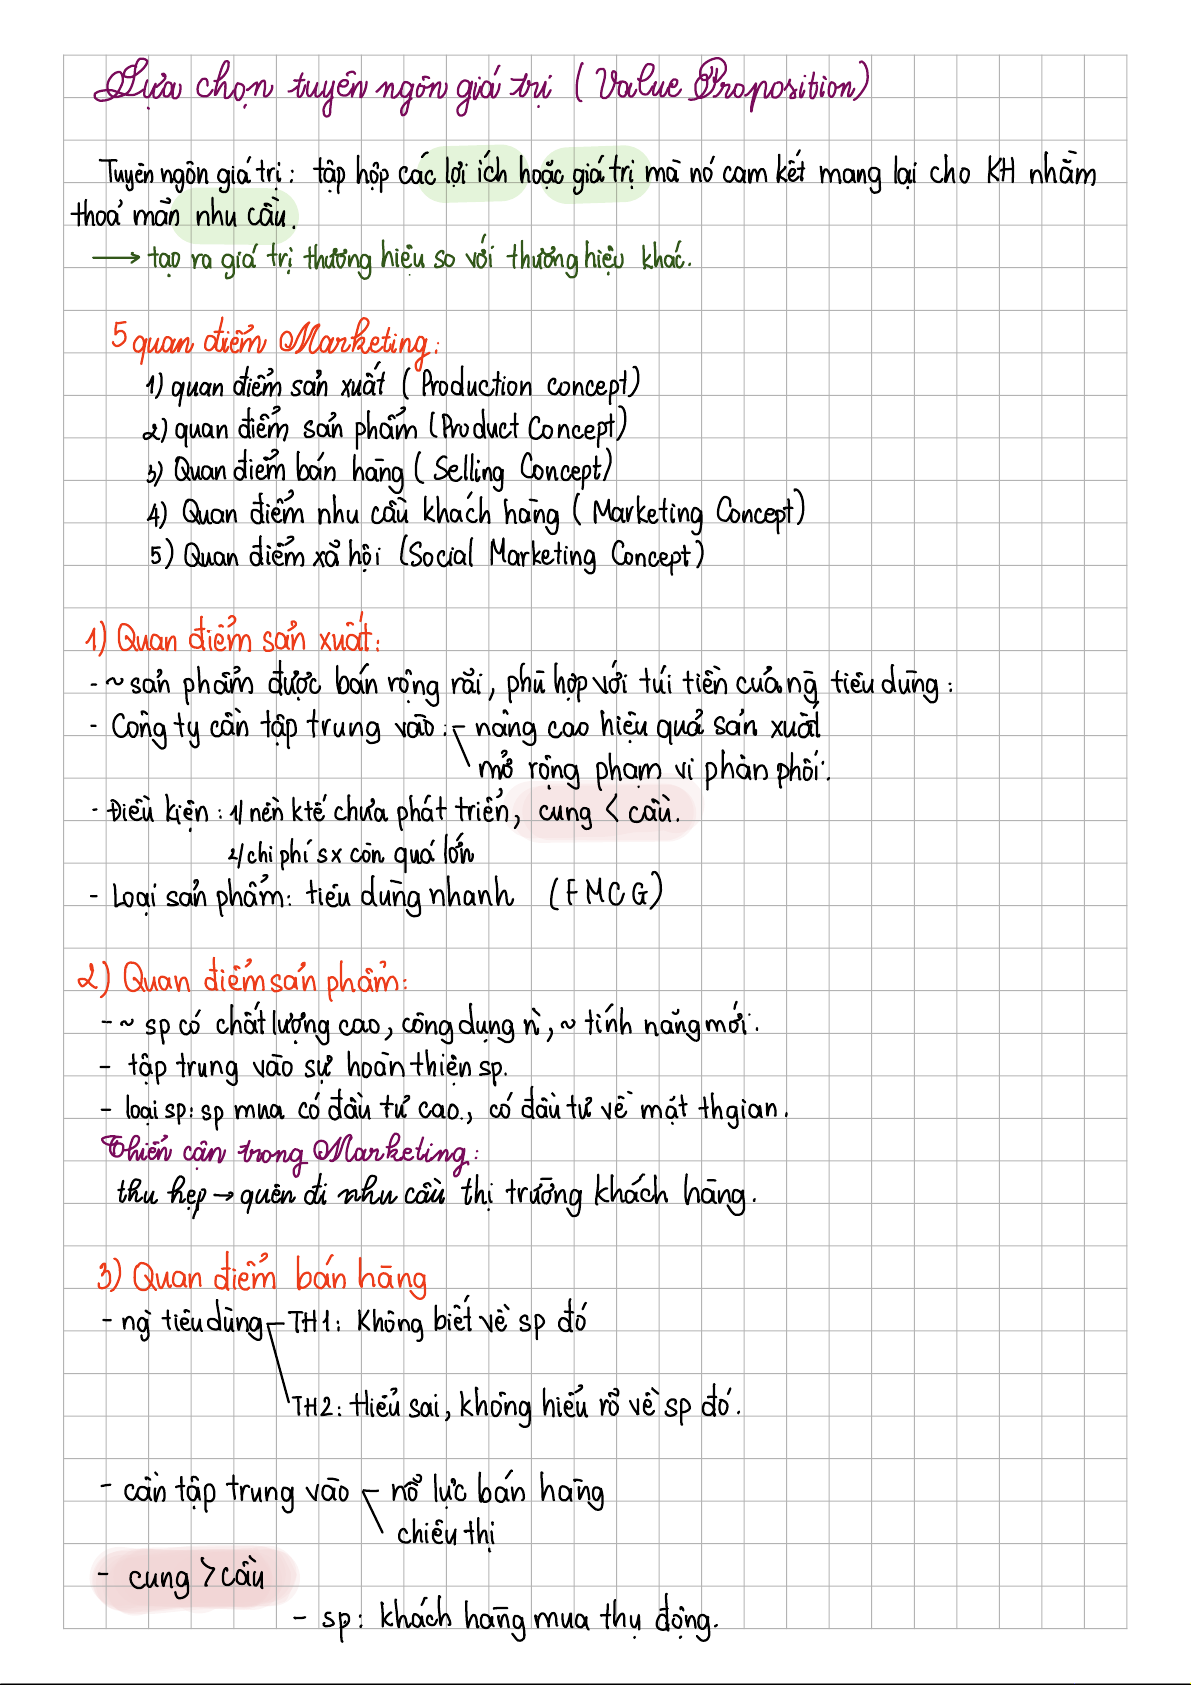 Lựa chọn tuyên ngôn giá trị (Value Proposition)
Tuyên ngôn giá trị: tập hợp các lợi ích hoặc giá trị mà nó cam kết mang lại cho KH nhằm
thoả mãn nhu cầu.
→ tạo ra giá trị thương hiệu so với thương hiệu khác.
5 quan điểm Marketing:
1) quan điểm sản xuất (Production concept)
2) quan điểm sản phẩm (Product Concept)
3) Quan điểm bán hàng (Selling Concept)
4) Quan điểm nhu cầu khách hàng (Marketing Concept)
5) Quan điểm xã hội (Social Marketing Concept)
1) Quan điểm sản xuất:
- ~ sản phẩm được bán rộng rãi, phù hợp với túi tiền của ng̀ tiêu dùng:
- Công ty cần tập trung vào: - nâng cao hiệu quả sản xuất
\ mở rộng phạm vi phân phối.
- Điều kiện: 1/ nền ktế chưa phát triển, cung < cầu.
2/ chi phí sx còn quá lớn
- Loại sản phẩm: tiêu dùng nhanh (FMCG)
2) Quan điểm sản phẩm:
- ~ sp có chất lượng cao, công dụng n̂`, ~ tính năng mới.
- tập trung vào sự hoàn thiện sp.
- loại sp: sp mua có đầu tư cao., có đầu tư về mặt thgian.
Thiển cận trong Marketing:
thu hẹp → quên đi nhu cầu thị trường khách hàng.
3) Quan điểm bán hàng
- ng̀ tiêu dùng - TH1: Không biết về sp đó
\ TH2: Hiểu sai, không hiểu rõ về sp đó.
- cần tập trung vào - nỗ lực bán hàng
\ chiêu thị
- cung > cầu
- sp: khách hàng mua thụ động.